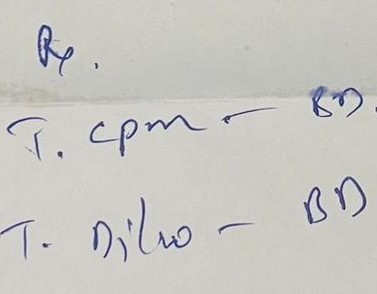 Rx.
T. cpm - BD.
T. Dilo - BD